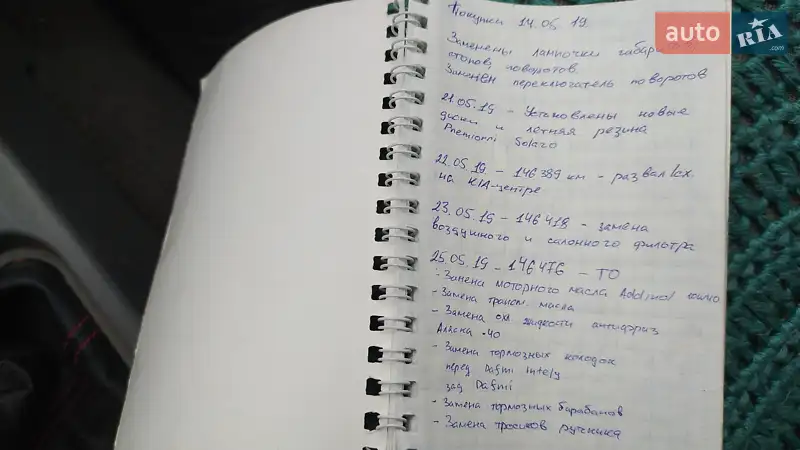 Покупки 14.05.19
Заменены лампочки габар
стопов, поворотов.
Заменён переключатель поворотов
21.05.19 - Установлены новые
диски и летняя резина
Premiorri Solazo
22.05.19 - 146389 км - развал/сх.
на KIA-центре
23.05.19 - 146418 - замена
воздушного и салонного фильтра
25.05.19 - 146476 - ТО
- Замена моторного масла Addinol
- Замена трансм. масла
- Замена охл жидкости антифриз
Аляска -40
- Замена тормозных колодок
перед Dafmi Intely
зад Dafmi
- Замена тормозных барабанов
- Замена тросиков ручника
auto RIA
.com